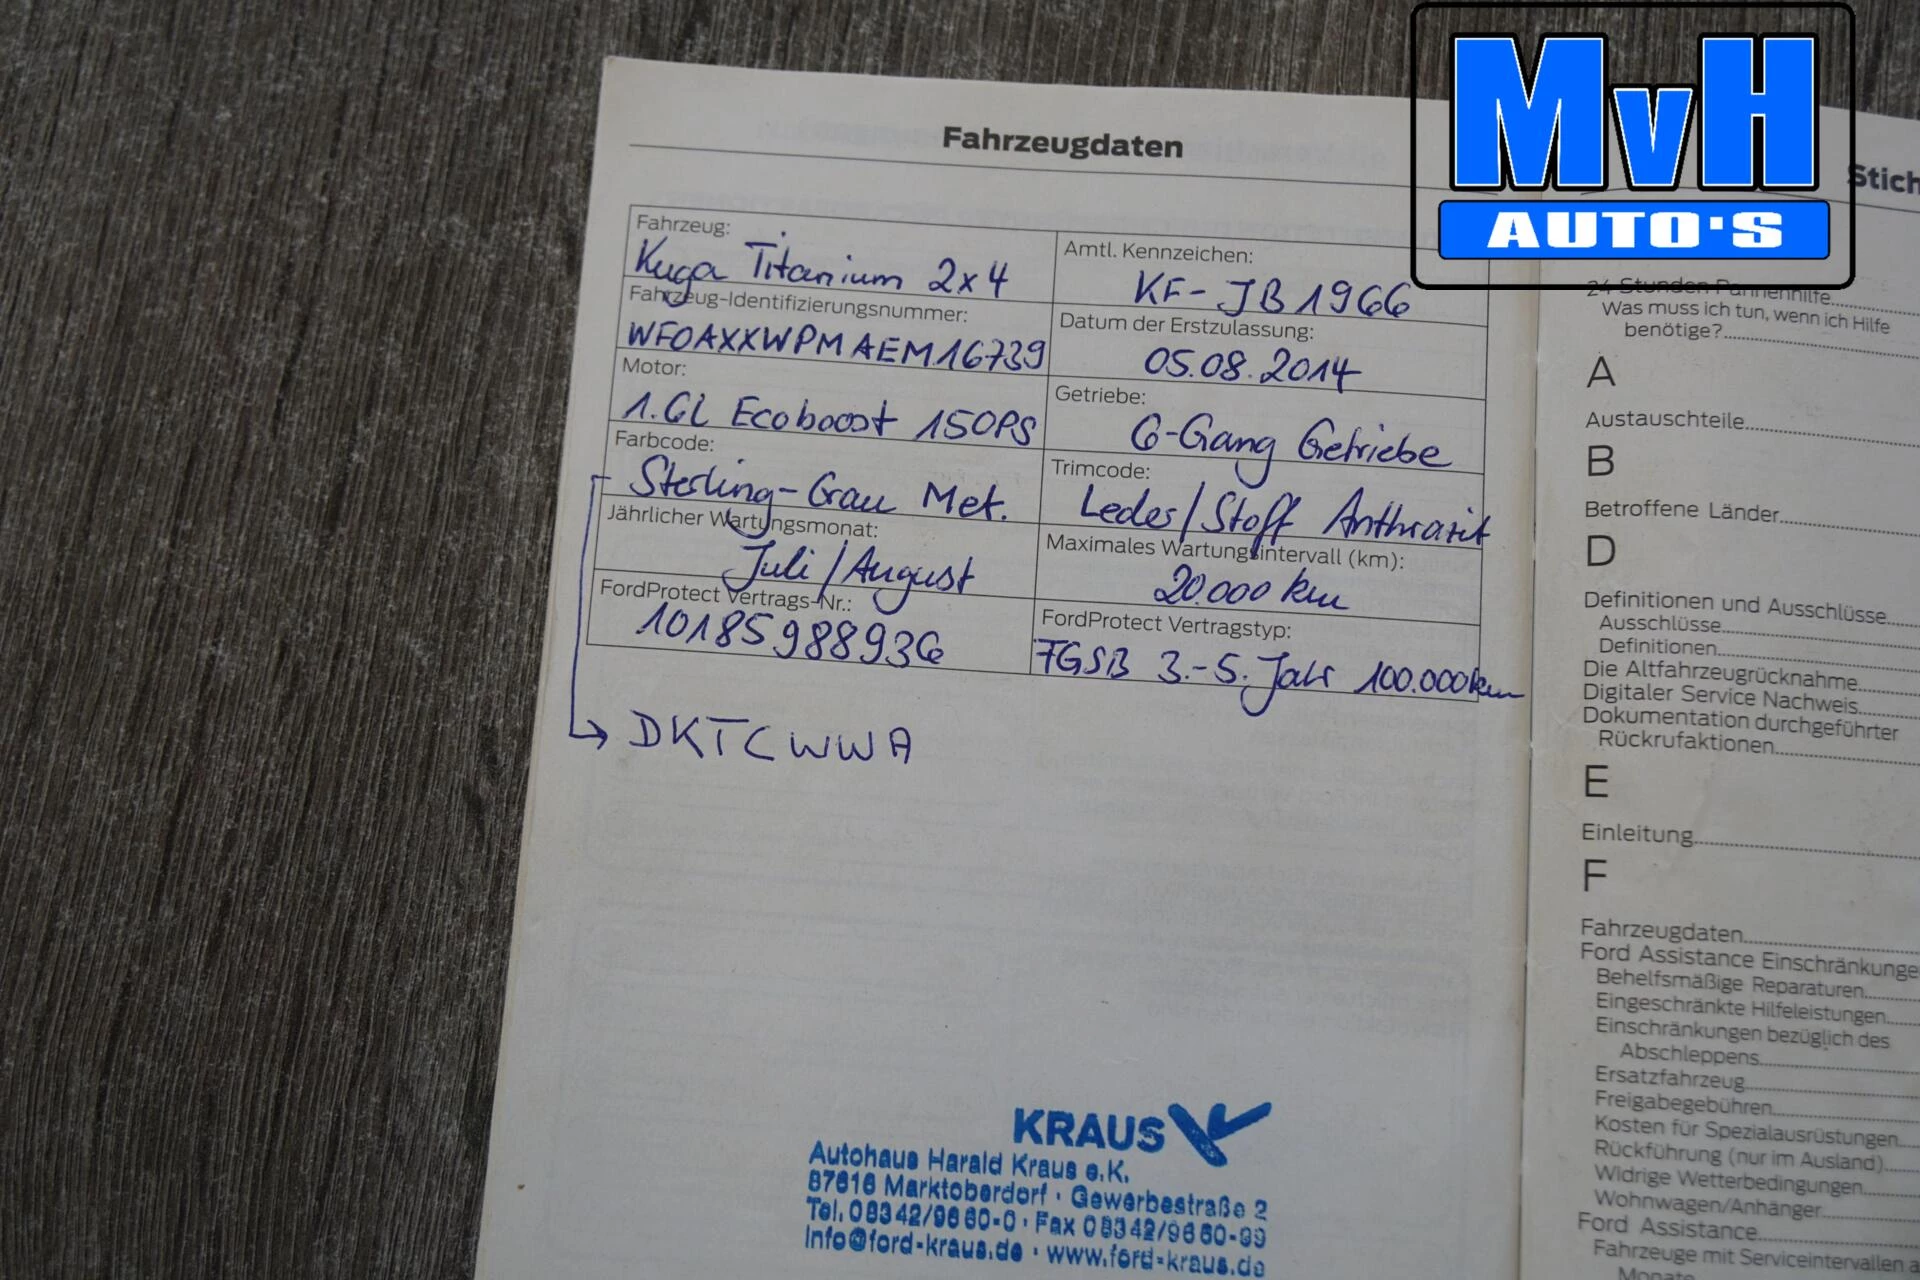 MvH
AUTO'S
Fahrzeugdaten
Fahrzeug:
Kuga Titanium 2x4
Amtl. Kennzeichen:
KF-JB 1966
Fahrzeug-Identifizierungsnummer:
WF0AXXWPMAEM16739
Datum der Erstzulassung:
05.08.2014
Motor:
1.6L Ecoboost 150PS
Getriebe:
6-Gang Getriebe
Farbcode:
Sterling-Grau Met.
Trimcode:
Leder/Stoff Anthrazit
Jährlicher Wartungsmonat:
Juli/August
Maximales Wartungsintervall (km):
20.000 km
FordProtect Vertrags-Nr.:
10185988936
FordProtect Vertragstyp:
FGSB 3.-5. Jahr 100.000km
DKTCWWA
KRAUS
Autohaus Harald Kraus e.K.
87616 Marktoberdorf · Gewerbestraße 2
Tel. 08342/9660-0 · Fax 08342/9660-99
info@ford-kraus.de · www.ford-kraus.de
Stich
24 Stunden Pannenhilfe
Was muss ich tun, wenn ich Hilfe
benötige?
A
Austauschteile
B
Betroffene Länder
D
Definitionen und Ausschlüsse
Ausschlüsse
Definitionen
Die Altfahrzeugrücknahme
Digitaler Service Nachweis
Dokumentation durchgeführter
Rückrufaktionen
E
Einleitung
F
Fahrzeugdaten
Ford Assistance Einschränkunge
Behelfsmäßige Reparaturen
Eingeschränkte Hilfeleistungen
Einschränkungen bezüglich des
Abschleppens
Ersatzfahrzeug
Freigabegebühren
Kosten für Spezialausrüstungen
Rückführung (nur im Ausland)
Widrige Wetterbedingungen
Wohnwagen/Anhänger
Ford Assistance
Fahrzeuge mit Serviceintervallen a
Monate